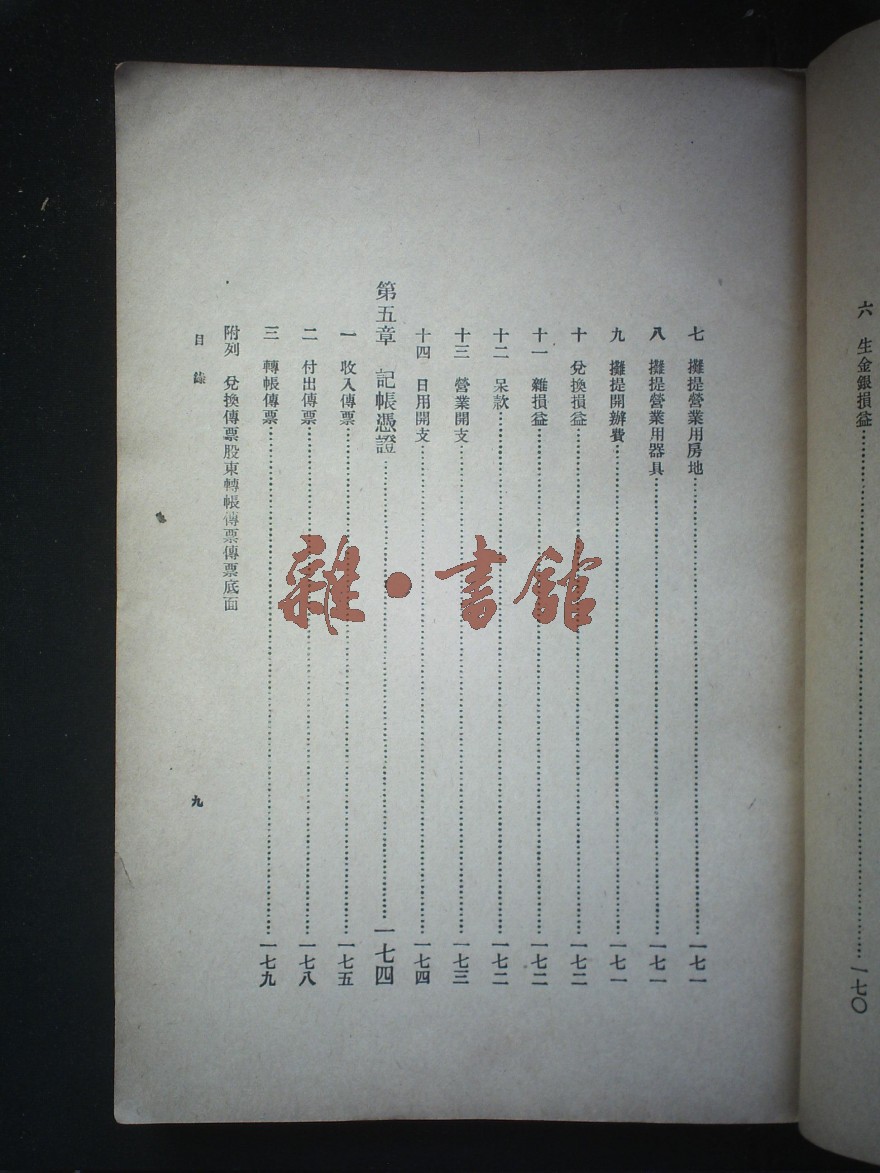 六　生金銀損益……一七〇
七　攤提營業用房地……一七一
八　攤提營業用器具……一七一
九　攤提開辦費……一七一
十　兌換損益……一七二
十一　雜損益……一七二
十二　呆款……一七二
十三　營業開支……一七三
十四　日用開支……一七四
第五章　記帳憑證……一七四
一　收入傳票……一七五
二　付出傳票……一七八
三　轉帳傳票……一七九
附列　兌換傳票股東轉帳傳票傳票底面
目錄　九
雜·書館